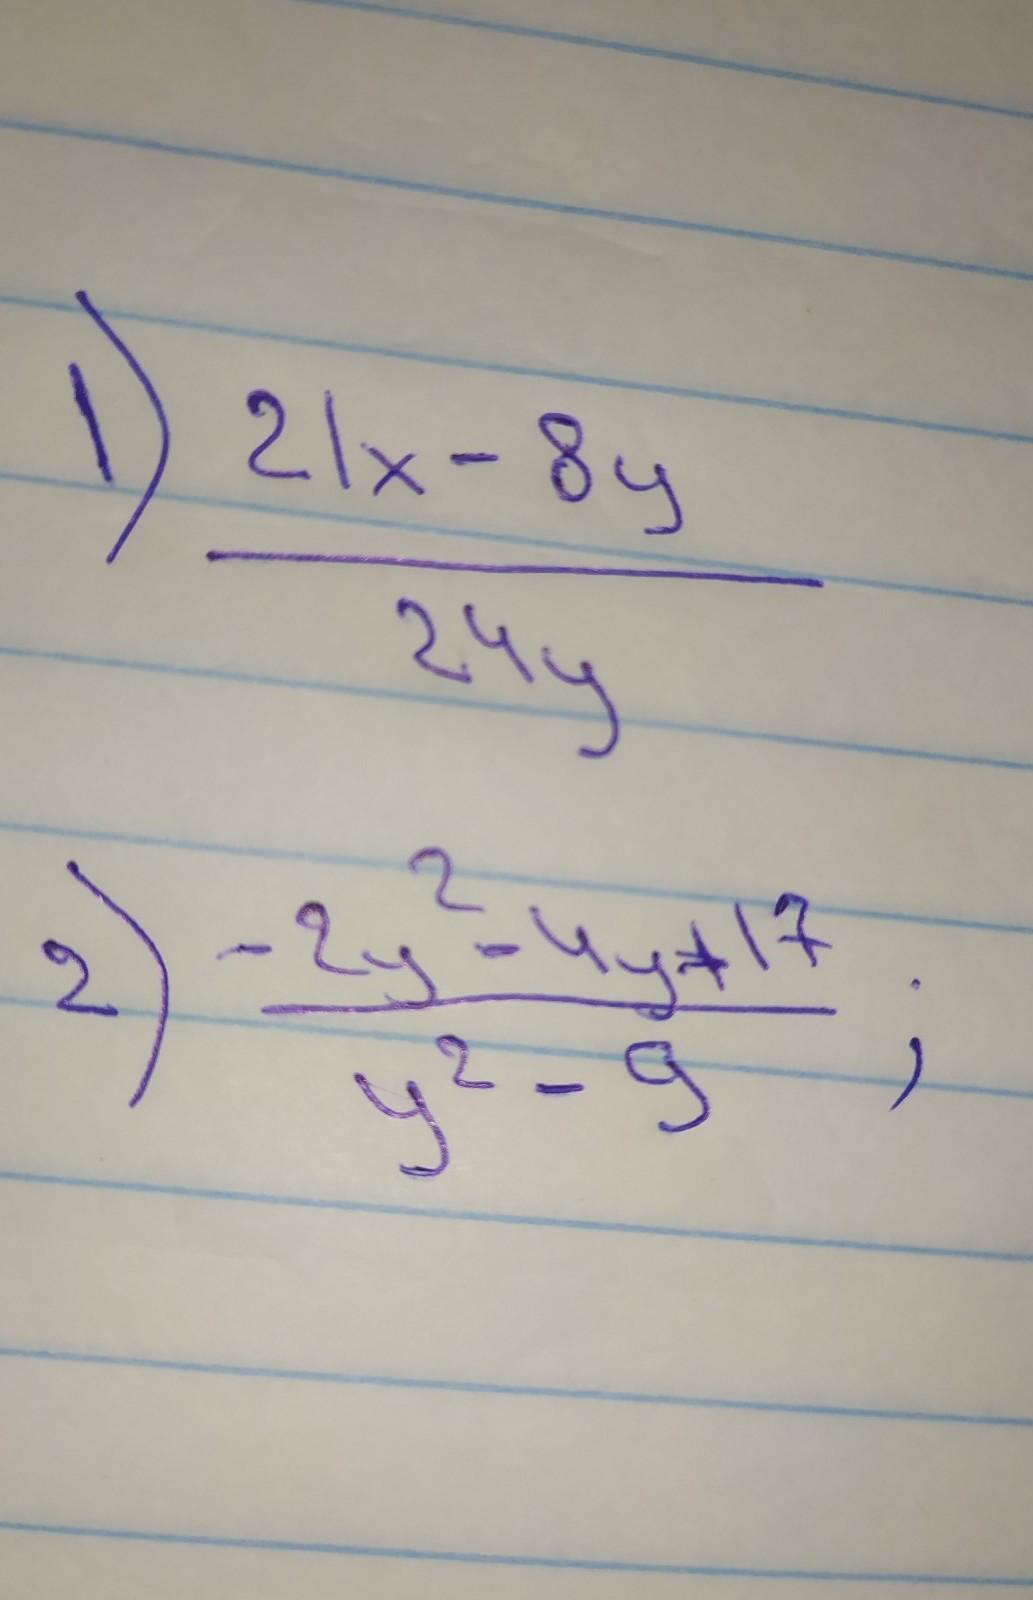 1) 21x - 8y
24y
2) -2y² - 4y + 17
y² - 9 ;